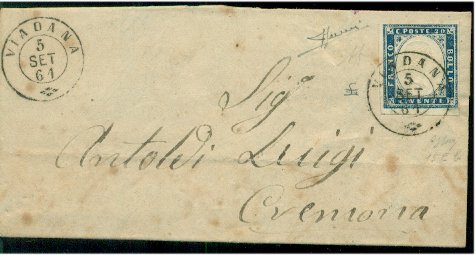 VIADANA
5
SET
61
FRANCO
C. POSTE 20
BOLLO
C. VENTI
VIADANA
5
SET
61
Sig
Antoldi Luigi
Cremona